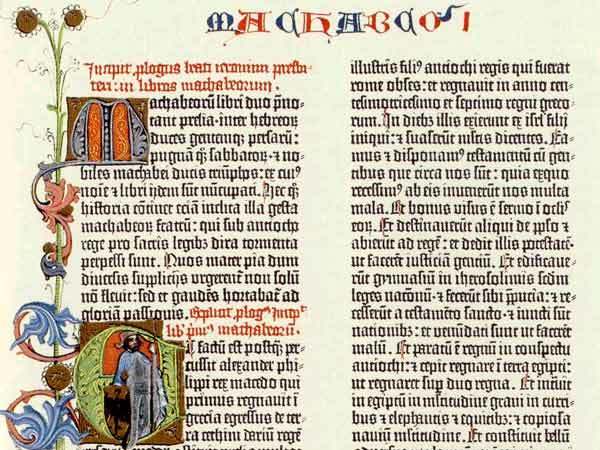 MACHABEOR̄ I
Incipit ꝓlogus beati ieronimi presbi-
teri in libros machabeorum.
Machabeorū libri duo p̄no-
tant prelia inter hebreoꝝ
duces gentemꝗ persarū:
pugnam q̄ꝫ sabbatoꝝ ⁊ no-
biles machabei ducis triūphos: ex cuiꝰ
noīe ⁊ libri ijdem sūt nūcupati. Hec q̄ꝫ
historia cōtinet eciā inclita illa gesta
machabeoꝝ fratrū: qui sub antiocho
rege pro sacris legibꝫ dira tormenta
perpessi sunt. Quos mater pia dum
diversis supplicijs urgerent̄ non solū
nō flevit: sed et gaudēs hortabat̄ ad
gloriam passionis. Explicit ꝓlogꝰ Incipit
lib̄ prim̄ꝰ machabeorū.
Et factū est postqꝫ per-
cussit alexander phi-
lippi rex macedo qui
primus regnavit ī
grecia egressus de ter-
ra cethim dariū regē
illustris filiꝰ antiochi regis qui fuerat
rome obses: et regnavit in anno cen-
tesimotricesimo et septimo regni greco-
rum. In diebꝫ illis exierunt ex isrl̄ filij
iniqui: ⁊ suaserūt multis dicentes. Ea-
mus ⁊ disponamꝰ testamentū cū gen-
tibus que circa nos sūt: quia ex quo
recessimꝰ ab eis invenerūt nos multa
mala. Et bonus visus ē sermo ī oculis
eoꝝ. Et destinaverūt aliqui de ꝓplo ⁊
abierūt ad regē: et dedit illis potestatē
ut facerēt iusticiā gencium. Et edificave-
rūt gymnasiū in iherosolimis sedm̄
leges nacionū: ⁊ fecerūt sibi p̄pucia: ⁊ re-
cesserūt a testamēto sancto: ⁊ iuncti sūt
nationibꝫ: et venūdati sunt ut facerēt
malū. Et paratū ē regnū in conspectu
antiochi: ⁊ cepit regnare ī terra egipti:
ut regnaret sup duo regna. Et intravit
in egiptū in multitudine gravi in curri-
bus ⁊ elephantis ⁊ equitibꝫ: ⁊ copiosa
navium multitudine. Et constituit bellū